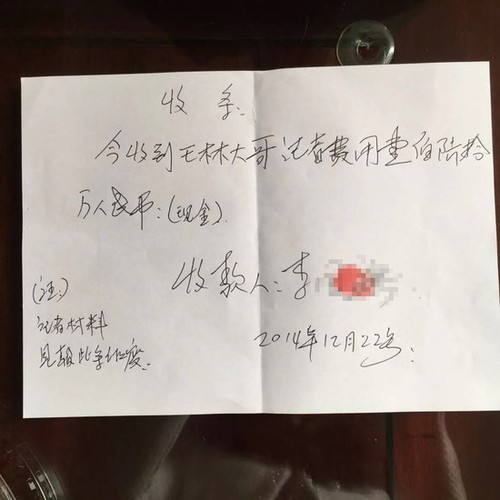 收条:
今收到王林大哥记者费用壹佰陆拾
万人民币:(现金)
收款人:李
2014年12月22号
(注:)
记者材料
见